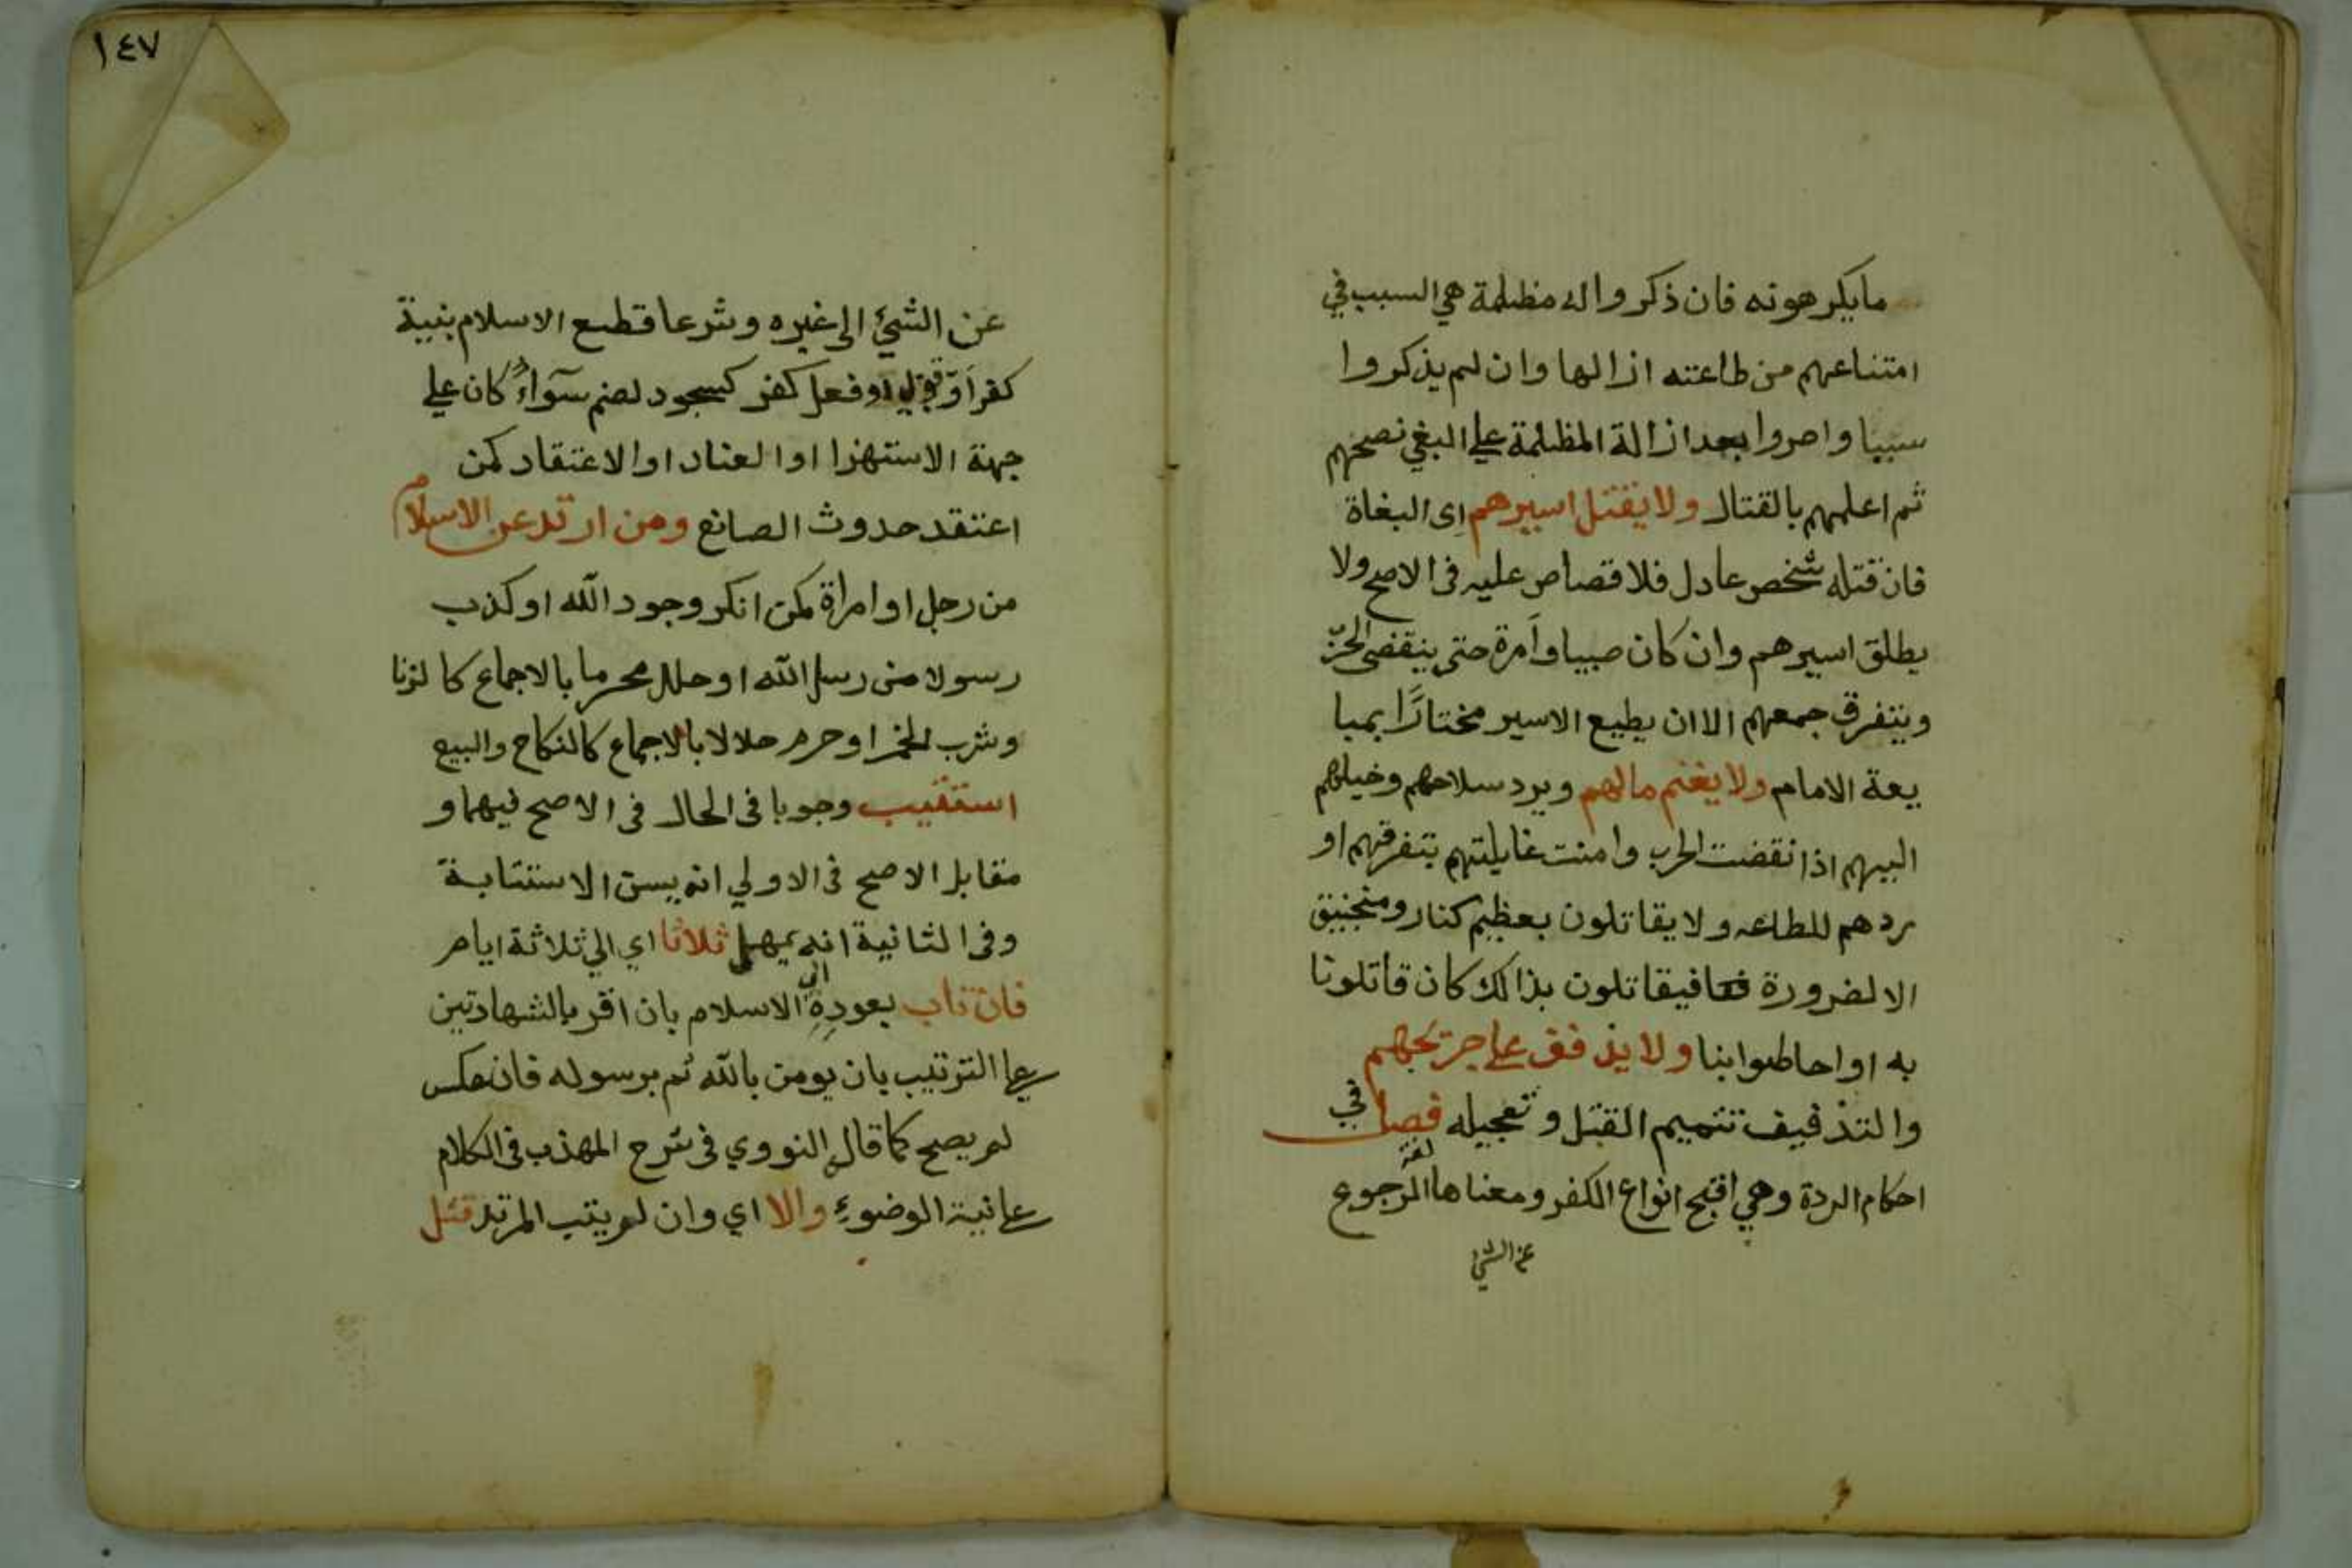 مايكرهونه فان ذكروا له مظلمة هي السبب في
امتناعهم من طاعته ازالها وان لم يذكروا
سببا واصروا بعد ازالة المظلمة علي البغي نصحهم
ثم اعلمهم بالقتال ولا يقتل اسيرهم اى البغاة
فان قتله شخص عادل فلا قصاص عليه فى الاصح ولا
يطلق اسيرهم وان كان صبيا وأمرة حتى ينقضى الحرب
ويتفرق جمعهم الا ان يطيع الاسير مختارًا بمبا
يعة الامام ولا يغنم مالهم ويرد سلاحهم وخيلهم
اليهم اذا نقضت الحرب وامنت غايلتهم بتفرقهم او
ردهم للطاعه ولا يقاتلون بعظيم كنار ومنجنيق
الا لضرورة فيقاتلون بذالك كان قاتلونا
به او احاطوا بنا ولا يذفف على جريحهم
والتذفيف تتميم القتل وتعجيله فصل في
احكام الردة وهي اقبح انواع الكفر ومعناها لغة الرجوع
عن الشئ
١٤٧
عن الشئ الى غيره وشرعا قطع الاسلام بنية
كفر او قول او فعل كفر كسجود لصنم سوآءٌ كان علي
جهة الاستهزا او العناد او الاعتقاد كمن
اعتقد حدوث الصانع ومن ارتد عن الاسلام
من رجل او امراة كمن انكر وجود الله او كذب
رسولا من رسل الله او حلل محرما بالاجماع كالزنا
وشرب الخمر او حرم حلالا بالاجماع كالنكاح والبيع
استتيب وجوبا فى الحال فى الاصح فيهما و
مقابل الاصح فى الاولي انه يسن الاستتابة
وفى الثانية انه يمهل ثلاثا اي الي ثلاثة ايام
فان تاب بعوده الى الاسلام بان اقر بالشهادتين
على الترتيب بان يومن بالله ثم برسوله فان عكس
لم يصح كما قال النووي فى شرح المهذب فى الكلام
على نية الوضوء والا اي وان لم يتب المرتد قتل